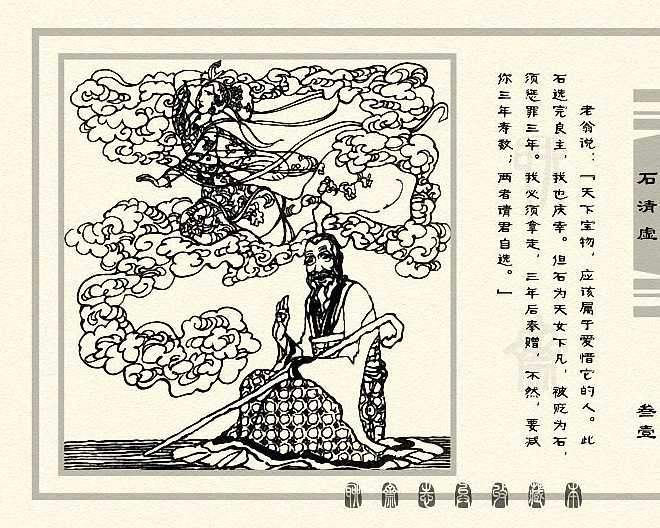 老翁说：「天下宝物，应该属于爱惜它的人。此
石选完良主，我也庆幸。但石为天女下凡，被贬为石，
须惩罪三年。我必须拿走，三年后奉赠，不然，要减
你三年寿数；两者请君自选。」
石清虚
叁壹
聊斋志异
藏本